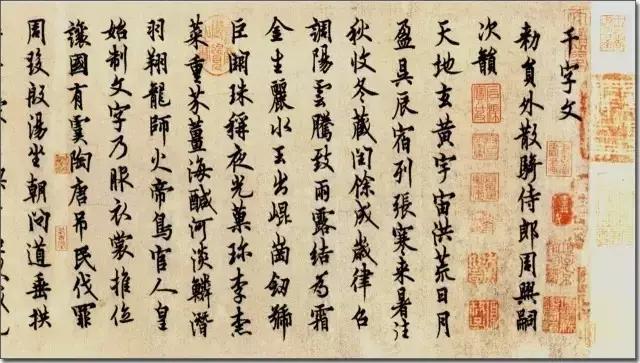 千字文
勑員外散騎侍郎周興嗣
次韻
天地玄黃宇宙洪荒日月
盈昃辰宿列張寒来暑往
秋收冬藏閏餘成歲律召
調陽雲騰致雨露結為霜
金生麗水玉出崐崗劎號
巨闕珠稱夜光菓珎李柰
菜重芥薑海醎河淡鱗潛
羽翔龍師火帝鳥官人皇
始制文字乃服衣裳推位
讓國有虞陶唐吊民伐罪
周發殷湯坐朝問道垂拱